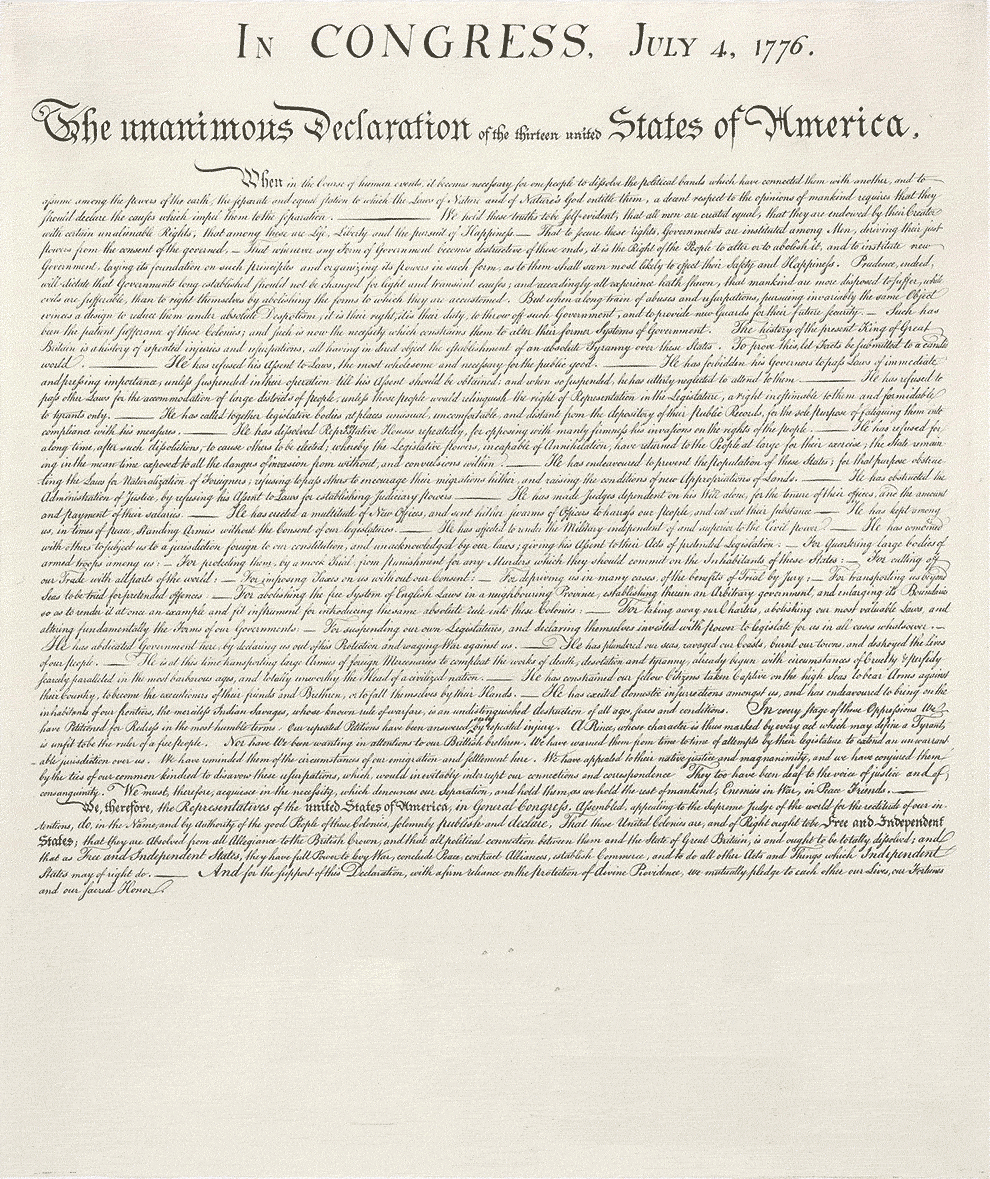 IN CONGRESS, JULY 4, 1776.
The unanimous Declaration of the thirteen united States of America,
When in the Course of human events, it becomes necessary for one people to dissolve the political bands which have connected them with another, and to
assume among the powers of the earth, the separate and equal station to which the Laws of Nature and of Nature's God entitle them, a decent respect to the opinions of mankind requires that they
should declare the causes which impel them to the separation. — We hold these truths to be self-evident, that all men are created equal, that they are endowed by their Creator
with certain unalienable Rights, that among these are Life, Liberty and the pursuit of Happiness. — That to secure these rights, Governments are instituted among Men, deriving their just
powers from the consent of the governed, — That whenever any Form of Government becomes destructive of these ends, it is the Right of the People to alter or to abolish it, and to institute new
Government, laying its foundation on such principles and organizing its powers in such form, as to them shall seem most likely to effect their Safety and Happiness. Prudence, indeed,
will dictate that Governments long established should not be changed for light and transient causes; and accordingly all experience hath shewn, that mankind are more disposed to suffer, while
evils are sufferable, than to right themselves by abolishing the forms to which they are accustomed. But when a long train of abuses and usurpations, pursuing invariably the same Object
evinces a design to reduce them under absolute Despotism, it is their right, it is their duty, to throw off such Government, and to provide new Guards for their future security. — Such has
been the patient sufferance of these Colonies; and such is now the necessity which constrains them to alter their former Systems of Government. The history of the present King of Great
Britain is a history of repeated injuries and usurpations, all having in direct object the establishment of an absolute Tyranny over these States. To prove this, let Facts be submitted to a candid
world. — He has refused his Assent to Laws, the most wholesome and necessary for the public good. — He has forbidden his Governors to pass Laws of immediate
and pressing importance, unless suspended in their operation till his Assent should be obtained; and when so suspended, he has utterly neglected to attend to them. — He has refused to
pass other Laws for the accommodation of large districts of people, unless those people would relinquish the right of Representation in the Legislature, a right inestimable to them and formidable
to tyrants only. — He has called together legislative bodies at places unusual, uncomfortable, and distant from the depository of their Public Records, for the sole purpose of fatiguing them into
compliance with his measures. — He has dissolved Representative Houses repeatedly, for opposing with manly firmness his invasions on the rights of the people. — He has refused for
a long time, after such dissolutions, to cause others to be elected; whereby the Legislative powers, incapable of Annihilation, have returned to the People at large for their exercise; the State remain
ing in the mean time exposed to all the dangers of invasion from without, and convulsions within. — He has endeavoured to prevent the population of these States; for that purpose obstruc-
ting the Laws for Naturalization of Foreigners; refusing to pass others to encourage their migrations hither, and raising the conditions of new Appropriations of Lands. — He has obstructed the
Administration of Justice, by refusing his Assent to Laws for establishing Judiciary powers — He has made Judges dependent on his Will alone, for the tenure of their offices, and the amount
and payment of their salaries — He has erected a multitude of New Offices, and sent hither swarms of Officers to harass our people, and eat out their substance — He has kept among
us, in times of peace, Standing Armies without the Consent of our legislatures. — He has affected to render the Military independent of and superior to the Civil power. — He has combined
with others to subject us to a jurisdiction foreign to our constitution, and unacknowledged by our laws; giving his Assent to their Acts of pretended Legislation: — For Quartering large bodies of
armed troops among us: — For protecting them, by a mock Trial, from punishment for any Murders which they should commit on the Inhabitants of these States: — For cutting off
our Trade with all parts of the world: — For imposing Taxes on us without our Consent: — For depriving us in many cases, of the benefits of Trial by Jury: — For transporting us beyond
Seas to be tried for pretended offences — For abolishing the free System of English Laws in a neighbouring Province, establishing therein an Arbitrary government, and enlarging its Boundaries
so as to render it at once an example and fit instrument for introducing the same absolute rule into these Colonies: — For taking away our Charters, abolishing our most valuable Laws, and
altering fundamentally the Forms of our Governments: — For suspending our own Legislatures, and declaring themselves invested with power to legislate for us in all cases whatsoever. —
He has abdicated Government here, by declaring us out of his Protection and waging War against us. — He has plundered our seas, ravaged our Coasts, burnt our towns, and destroyed the lives
of our people. — He is at this time transporting large Armies of foreign Mercenaries to compleat the works of death, desolation and tyranny, already begun with circumstances of Cruelty & perfidy
scarcely paralleled in the most barbarous ages, and totally unworthy the Head of a civilized nation. — He has constrained our fellow Citizens taken Captive on the high Seas to bear Arms against
their Country, to become the executioners of their friends and Brethren, or to fall themselves by their Hands. — He has excited domestic insurrections amongst us, and has endeavoured to bring on the
inhabitants of our frontiers, the merciless Indian Savages, whose known rule of warfare, is an undistinguished destruction of all ages, sexes and conditions. In every stage of these Oppressions We
have Petitioned for Redress in the most humble terms: Our repeated Petitions have been answered only by repeated injury. A Prince, whose character is thus marked by every act which may define a Tyrant,
is unfit to be the ruler of a free people. Nor have We been wanting in attentions to our Brittish brethren. We have warned them from time to time of attempts by their legislature to extend an unwarrant-
able jurisdiction over us. We have reminded them of the circumstances of our emigration and settlement here. We have appealed to their native justice and magnanimity, and we have conjured them
by the ties of our common kindred to disavow these usurpations, which, would inevitably interrupt our connections and correspondence They too have been deaf to the voice of justice and of
consanguinity. We must, therefore, acquiesce in the necessity, which denounces our Separation, and hold them, as we hold the rest of mankind, Enemies in War, in Peace Friends. —
We, therefore, the Representatives of the united States of America, in General Congress, Assembled, appealing to the Supreme Judge of the world for the rectitude of our in-
tentions, do, in the Name, and by Authority of the good People of these Colonies, solemnly publish and declare, That these United Colonies are, and of Right ought to be Free and Independent
States; that they are Absolved from all Allegiance to the British Crown, and that all political connection between them and the State of Great Britain, is and ought to be totally dissolved; and
that as Free and Independent States, they have full Power to levy War, conclude Peace, contract Alliances, establish Commerce, and to do all other Acts and Things which Independent
States may of right do. — And for the support of this Declaration, with a firm reliance on the protection of divine Providence, we mutually pledge to each other our Lives, our Fortunes
and our sacred Honor.